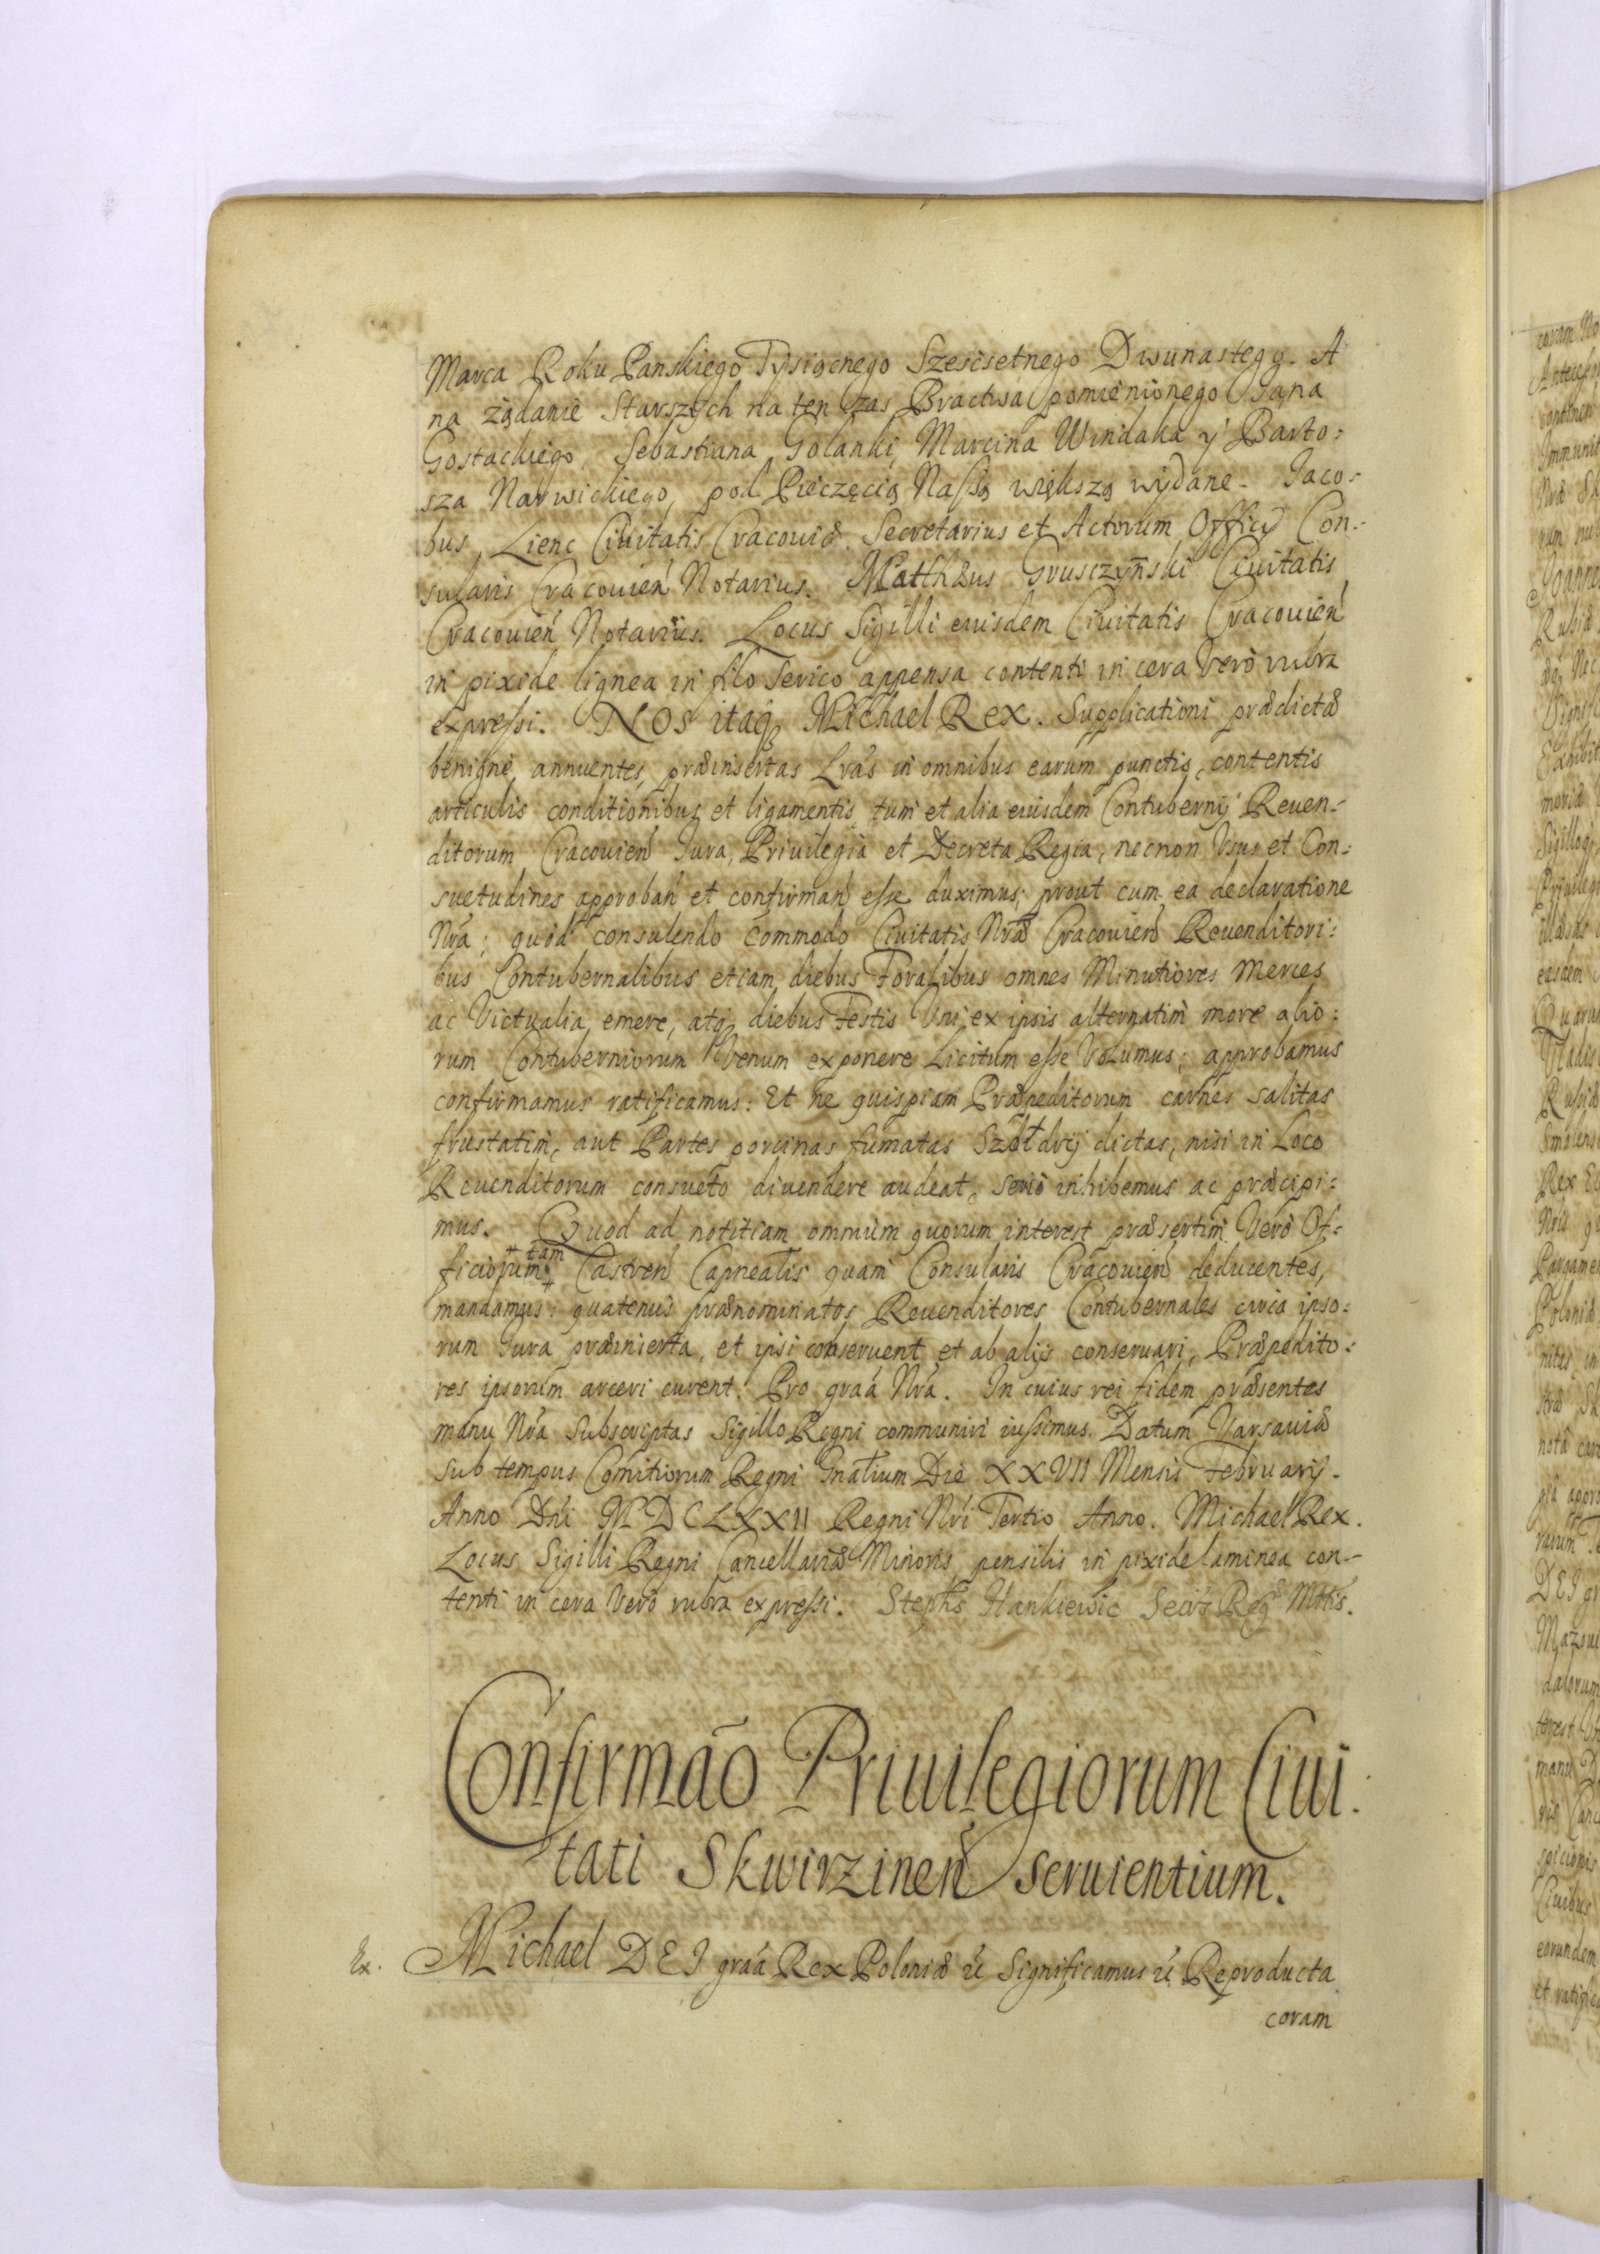 Marca Roku Panskiego Tysiącnego Szescsetnego Dwunastego. A
na żądanie Starszych na ten czas Bractwa pomienionego Jana
Gostackiego, Sebastiana Golanki, Marcina Windaka y Barto:
sza Narwickiego, pod Pieczęcią Naszą większą wydane. Jaco-
bus Lienc Ciuitatis Cracouiæ Secretarius et Actorum Officij Con-
sularis Cracouień Notarius. Matthæus Grusczyński Ciuitatis
Cracouień Notarius. Locus Sigilli eiusdem Ciuitatis Cracouień
in pixide lignea in filo serico appensa contenti in cera Verò rubra
expressi. NOS itaq Michael Rex. Supplicationi prædictæ
benignè annuentes, præinsertas Lrás in omnibus earum punctis, contentis
articulis conditionibus et ligamentis, tum et alia eiusdem Contubernij Reuen-
ditorum Cracouień Jura, Priuilegia et Decreta Regia, necnon Usus et Con:
suetudines approbań et confirmań esse duximus; prout cum ea declaratione
Nrá; quod consulendo commodo Ciuitatis Nræ Cracouień Reuenditori:
bus Contubernalibus etiam diebus Foralibus omnes Minutiores merces
ac Victualia emere, atq diebus Festis Uni ex ipsis alternatim more alio:
rum Contuberniorum Venum exponere Licitum esse Volumus; approbamus
confirmamus ratificamus: Et ne quispiam Præpeditorum carnes salitas
frustatim, aut Partes porcinas fumatas Szołdrij dictas, nisi in Loco
Reuenditorum consueto diuendere audeat, seriò inhibemus ac præcipi:
mus. Quod ad notitiam omnium quorum interest præsertim Verò Of-
ficiorum tam Castreń Capnealis quam Consularis Cracouień deducentes,
mandamus: quatenus prænominatos Reuenditores Contubernales circa ipso:
rum Jura præinserta, et ipsi conseruent et ab alijs conseruari, Præpedito:
res ipsorum arceri curent. Pro graá Nrá. In cuius rei fidem præsentes
manu Nrá Subscriptas Sigillo Regni communiri iussimus. Datum Varsauiæ
sub tempus Comitiorum Regni Gnalium Die XXVII Mensis Februarij.
Anno Dńi MDCLXXII Regni Nrí Tertio Anno. Michael Rex.
Locus Sigilli Regni Cancellariæ Minoris, pensilis in pixide laminea con-
tenti in cera Verò rubra expressi. Stephs Hankiewic Secrt Regæ Mttis.
Confirmão Priuilegiorum Ciui.
tati Skwirzineń seruientium.
Ex. Michael DEI graá Rex Poloniæ ú Significamus ú Reproducta
coram